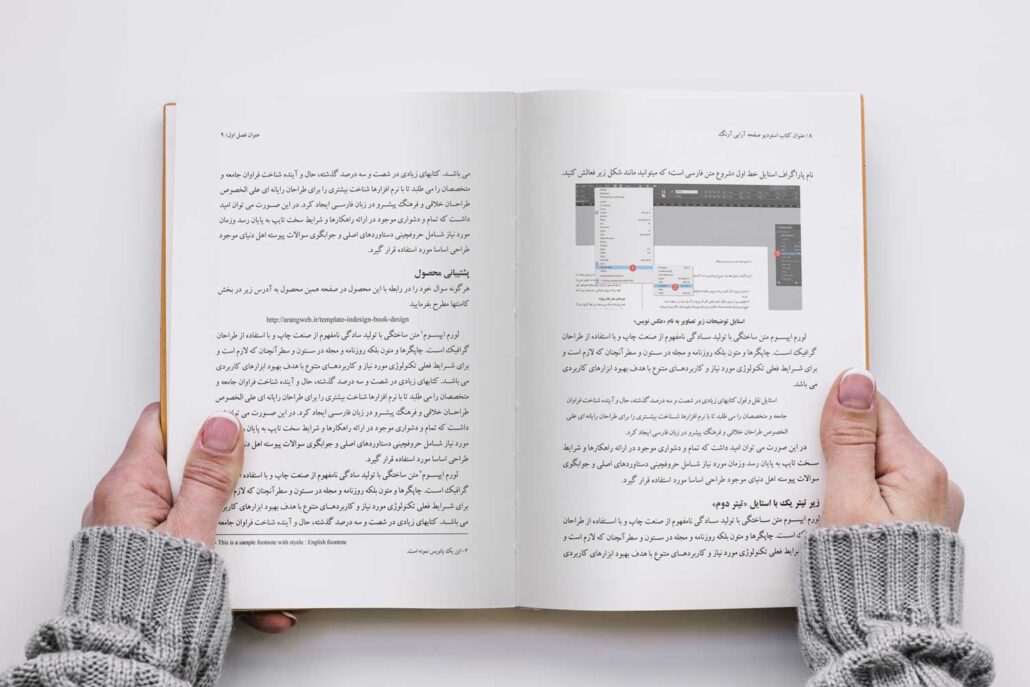 ۸ / عنوان کتاب استودیو صفحه آرایی آرنگ
نام پاراگراف استایل خط اول «شروع متن فارسی است» که میتوانید مانند شکل زیر فعالش کنید.
استایل توضیحات زیر تصاویر به نام «عکس نویس»
لورم ایپسوم متن ساختگی با تولید سادگی نامفهوم از صنعت چاپ و با استفاده از طراحان
گرافیک است. چاپگرها و متون بلکه روزنامه و مجله در ستون و سطرآنچنان که لازم است و
برای شرایط فعلی تکنولوژی مورد نیاز و کاربردهای متنوع با هدف بهبود ابزارهای کاربردی
می باشد.
استایل نقل و قول کتابهای زیادی در شصت و سه درصد گذشته، حال و آینده شناخت فراوان
جامعه و متخصصان را می طلبد تا با نرم افزارها شناخت بیشتری را برای طراحان رایانه ای علی
الخصوص طراحان خلاقی و فرهنگ پیشرو در زبان فارسی ایجاد کرد.
در این صورت می توان امید داشت که تمام و دشواری موجود در ارائه راهکارها و شرایط
سخت تایپ به پایان رسد وزمان مورد نیاز شامل حروفچینی دستاوردهای اصلی و جوابگوی
سوالات پیوسته اهل دنیای موجود طراحی اساسا مورد استفاده قرار گیرد.
زیر تیتر یک با استایل «تیتر دوم»
لورم ایپسوم متن ساختگی با تولید سادگی نامفهوم از صنعت چاپ و با استفاده از طراحان
است. چاپگرها و متون بلکه روزنامه و مجله در ستون و سطرآنچنان که لازم است و
برای شرایط فعلی تکنولوژی مورد نیاز و کاربردهای متنوع با هدف بهبود ابزارهای کاربردی
عنوان فصل اول/ ۹
می باشد. کتابهای زیادی در شصت و سه درصد گذشته، حال و آینده شناخت فراوان جامعه و
متخصصان را می طلبد تا با نرم افزارها شناخت بیشتری را برای طراحان رایانه ای علی الخصوص
طراحان خلاقی و فرهنگ پیشرو در زبان فارسی ایجاد کرد. در این صورت می توان امید
داشت که تمام و دشواری موجود در ارائه راهکارها و شرایط سخت تایپ به پایان رسد وزمان
مورد نیاز شامل حروفچینی دستاوردهای اصلی و جوابگوی سوالات پیوسته اهل دنیای موجود
طراحی اساسا مورد استفاده قرار گیرد.
پشتیبانی محصول
هرگونه سوال خود را در رابطه با این محصول در صفحه همین محصول به آدرس زیر در بخش
کامنتها مطرح بفرمایید
http://arangweb.ir/template-indesign-book-design
لورم ایپسوم۱ متن ساختگی با تولید سادگی نامفهوم از صنعت چاپ و با استفاده از طراحان
گرافیک است. چاپگرها و متون بلکه روزنامه و مجله در ستون و سطرآنچنان که لازم است و
برای شرایط فعلی تکنولوژی مورد نیاز و کاربردهای متنوع با هدف بهبود ابزارهای کاربردی
می باشد. کتابهای زیادی در شصت و سه درصد گذشته، حال و آینده شناخت فراوان جامعه و
متخصصان را می طلبد تا با نرم افزارها شناخت بیشتری را برای طراحان رایانه ای علی الخصوص
طراحان خلاقی و فرهنگ پیشرو در زبان فارسی ایجاد کرد. در این صورت می توان
که تمام و دشواری موجود در ارائه راهکارها و شرایط سخت تایپ به پایان رسد وزمان
مورد نیاز شامل حروفچینی دستاوردهای اصلی و جوابگوی سوالات پیوسته اهل
طراحی اساسا مورد استفاده قرار گیرد.
لورم ایپسوم۲ متن ساختگی با تولید سادگی نامفهوم از صنعت چاپ و با استفاده از
گرافیک است. چاپگرها و متون بلکه روزنامه و مجله در ستون و سطرآنچنان که لازم
برای شرایط فعلی تکنولوژی مورد نیاز و کاربردهای متنوع با هدف بهبود ابزارهای
می باشد. کتابهای زیادی در شصت و سه درصد گذشته، حال و آینده شناخت فراوان جامعه
- This is a sample footnote with styele : English footnote
۲- این یک پانویس نمونه است.